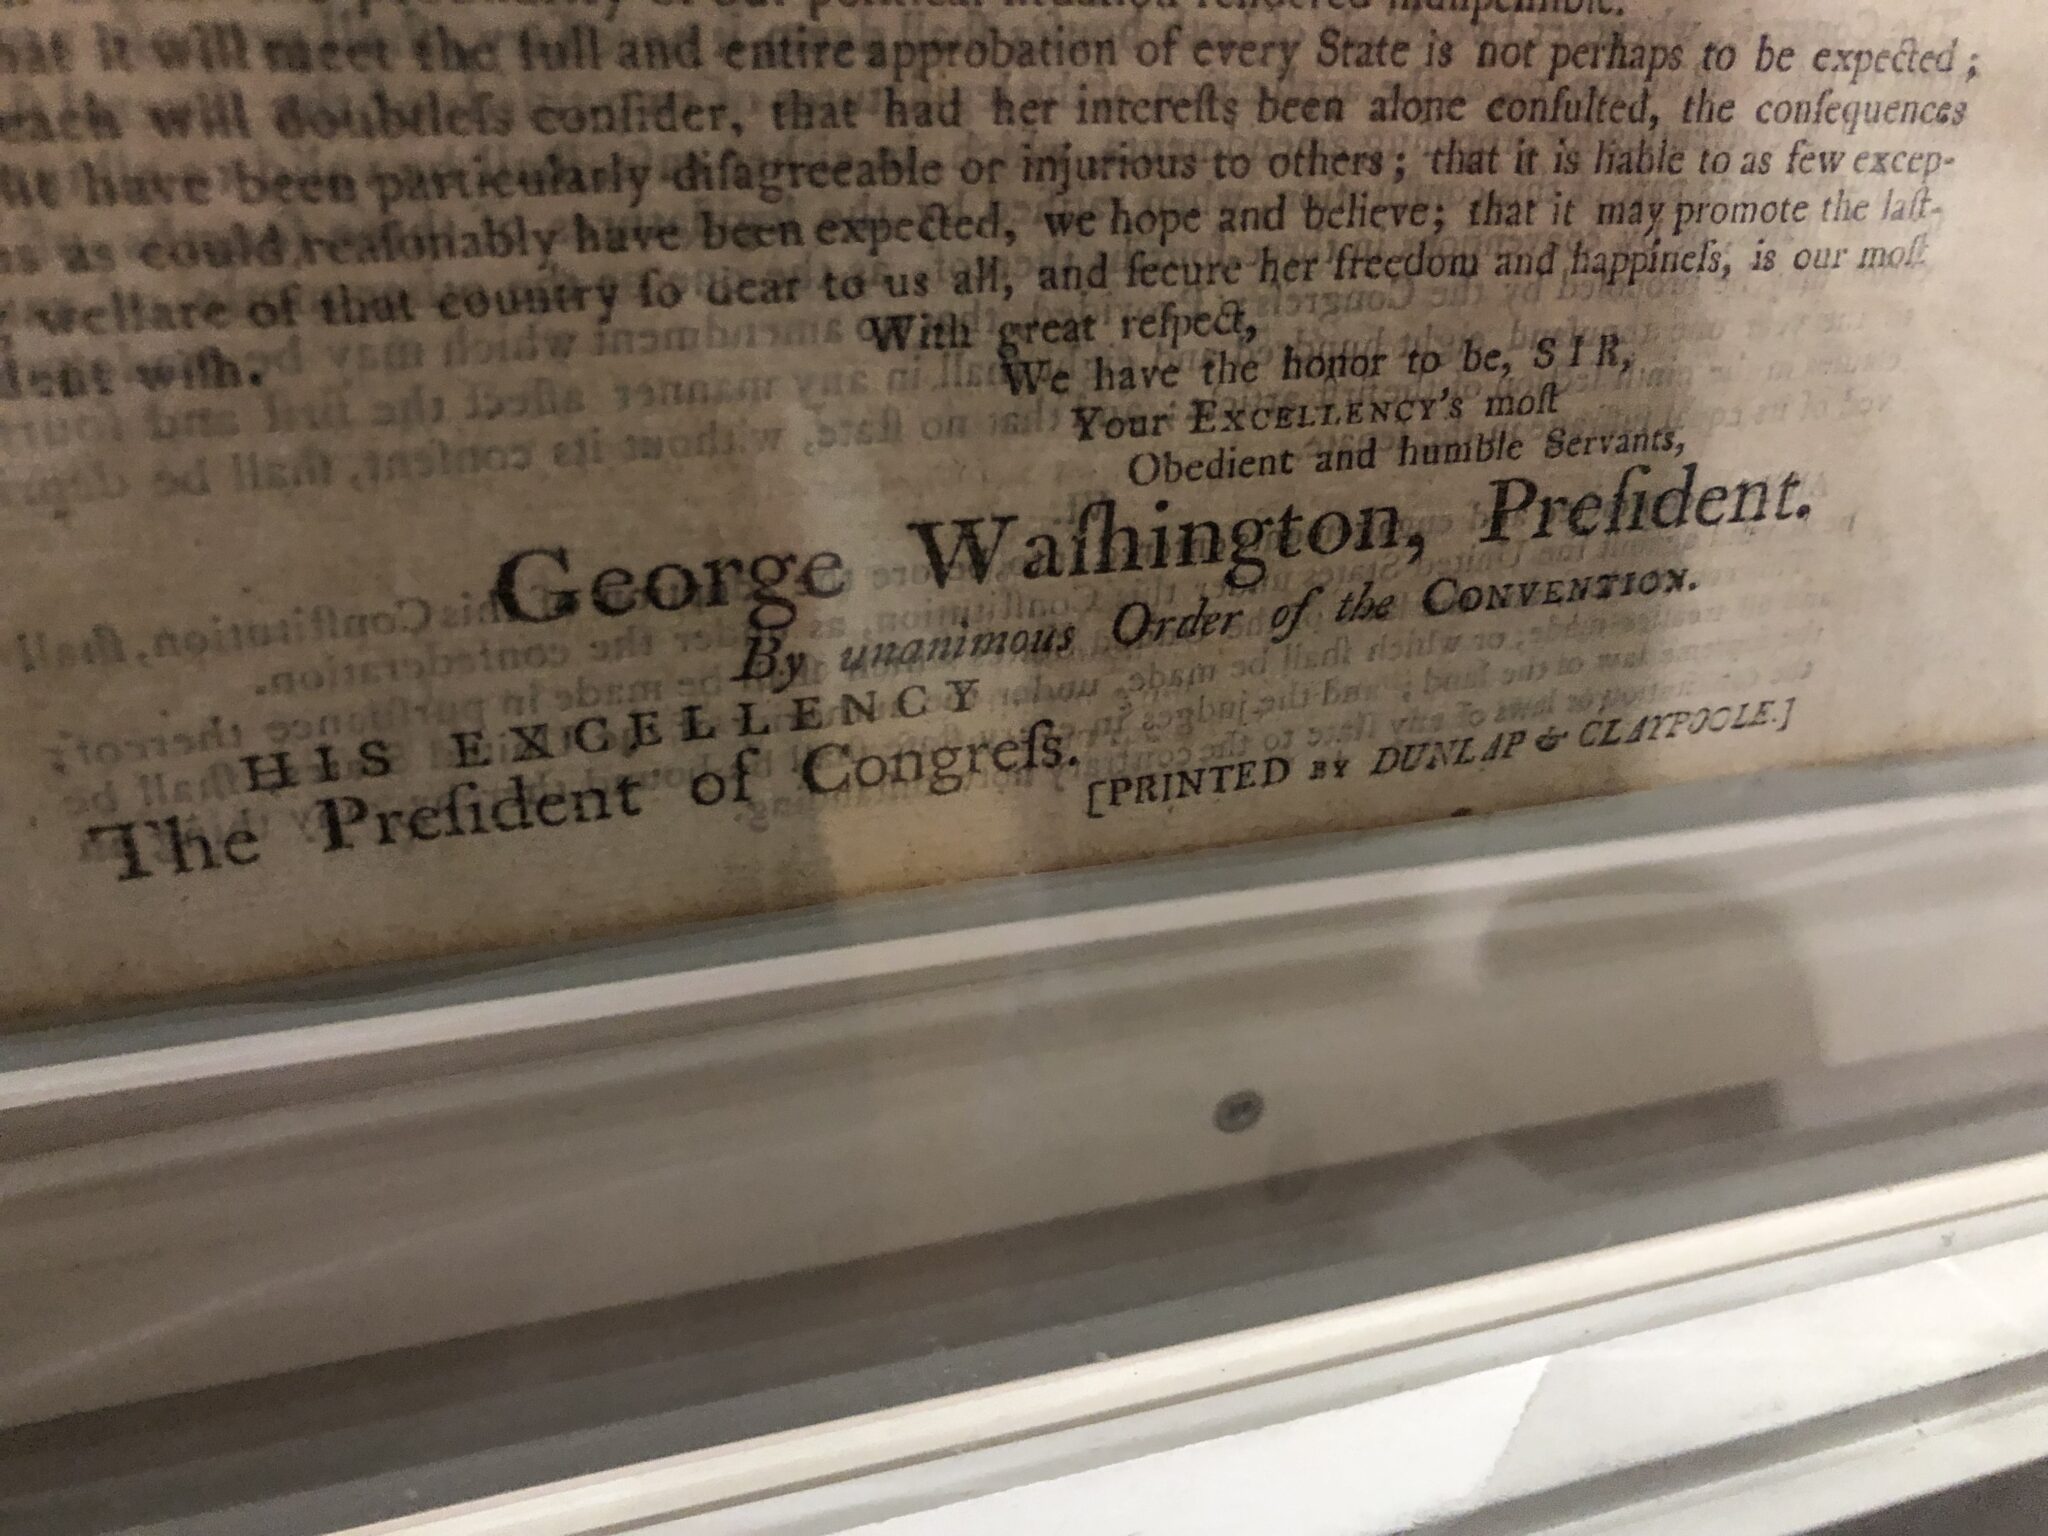 of our political situation rendered indispensible.
hat it will meet the full and entire approbation of every State is not perhaps to be expected ;
each will doubtleſs conſider, that had her intereſts been alone conſulted, the conſequences
have been particularly diſagreeable or injurious to others ; that it is liable to as few excep-
ns as could reaſonably have been expected, we hope and believe; that it may promote the laſt-
welfare of that country ſo dear to us all, and ſecure her freedom and happineſs, is our moſt
dent wiſh.
With great reſpect,
We have the honor to be, SIR,
Your EXCELLENCY'S moſt
Obedient and humble Servants,
George Waſhington, Preſident.
By unanimous Order of the CONVENTION.
HIS EXCELLENCY
The Preſident of Congreſs.
[PRINTED BY DUNLAP & CLAYPOOLE.]